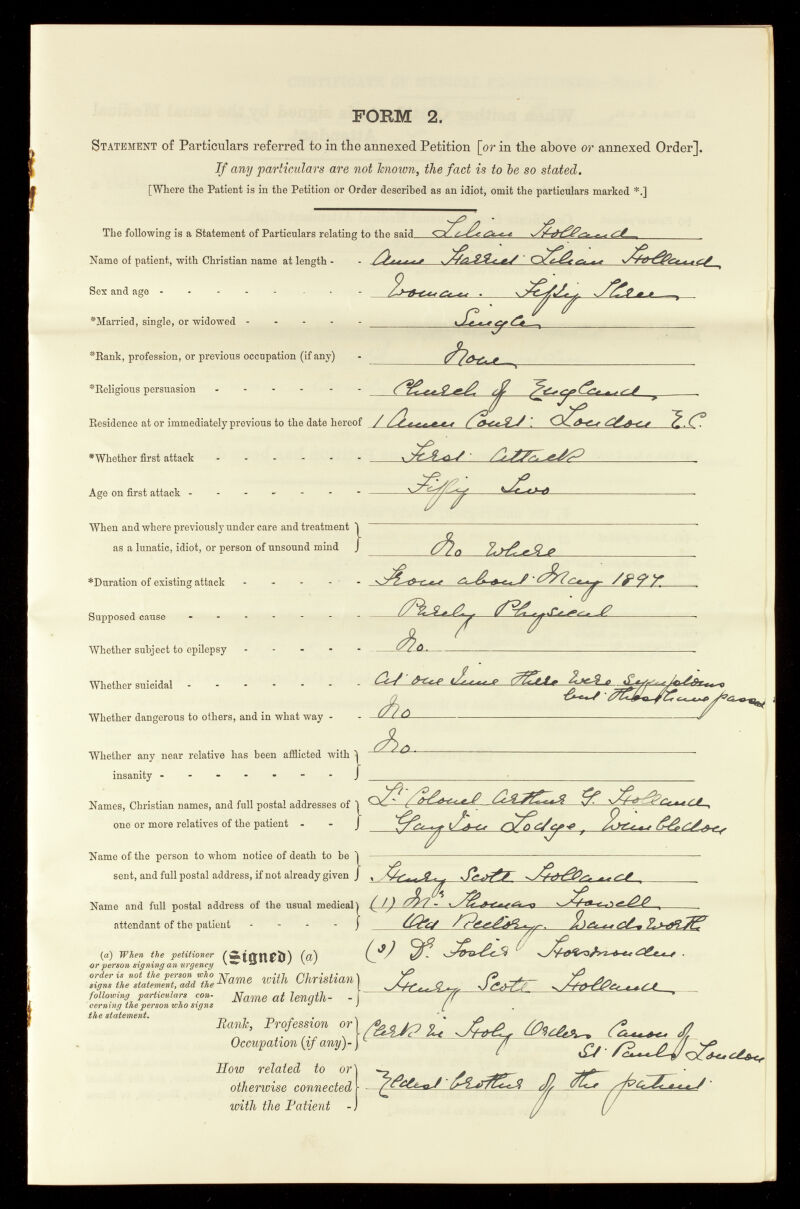 FORM 2.
STATEMENT of Particulars referred to in the annexed Petition [or in the above or annexed Order].
If any particulars are not known, the fact is to be so stated.
[Where the Patient is in the Petition or Order described as an idiot, omit the particulars marked *.]
The following is a Statement of Particulars relating to the said Lilian Holland
Name of patient, with Christian name at length - - Anne Harriet Lilian Holland
Sex and age - - - - - - - - Woman. Fifty Three
*Married, single, or widowed - - - - - Single
*Rank, profession, or previous occupation (if any) - None
*Religious persuasion - - - - - - Church of England
Residence at or immediately previous to the date hereof 1 Amen Court: London E.C.
*Whether first attack - - - - - - First Attack
Age on first attack - - - - - - - Fifty Two
When and where previously under care and treatment
as a lunatic, idiot, or person of unsound mind } No where
*Duration of existing attack - - - - - From about May 1897.
Supposed cause - - - - - - - Purely Physical
Whether subject to epilepsy - - - - - No.
Whether suicidal - - - - - - - At one time there were symptoms
but these have passed
Whether dangerous to others, and in what way - - No
Whether any near relative has been afflicted with } No.
insanity - - - - - - -
Names, Christian names, and full postal addresses of } Lt. Colonel Arthur G. Holland
one or more relatives of the patient - - Gayton Lodge, Wimbledon
Name of the person to whom notice of death to be }
sent, and full postal address, if not already given Henry Scott Holland
Name and full postal address of the usual medical } (1) Mr. Thomas Howell
attendant of the patient - - - - Old Rectory. Wandsworth
(2) Dr. Horsmonden.
(a) When the petitioner or person signing an urgency order is not the person who signs the statement, add the following particulars concerning the person who signs the statement.
(Signed) (a)
Name with Christian } Henry Scott Holland
Name at length- -
Rank, Profession or } Clerk in Holy Orders Canon of
Occupation (if any)- St. Pauls London
How related to or
otherwise connected } Eldest brother of the patient
with the Patient -